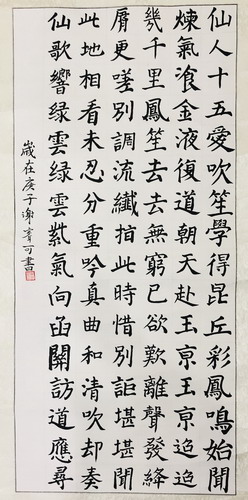 仙人十五愛吹笙學得昆丘彩鳳鳴始聞
煉氣飡金液復道朝天赴王亰王亰迢迢
幾千里鳳笙去去無窮已欲歎離聲發絳
脣更嗟別調流纖指此時惜別詎堪堪聞
此地相看未忍分重吟真曲和清吹却奏
仙歌響绿雲绿雲紫氣向函關訪道應尋
歲在庚子謝青可書